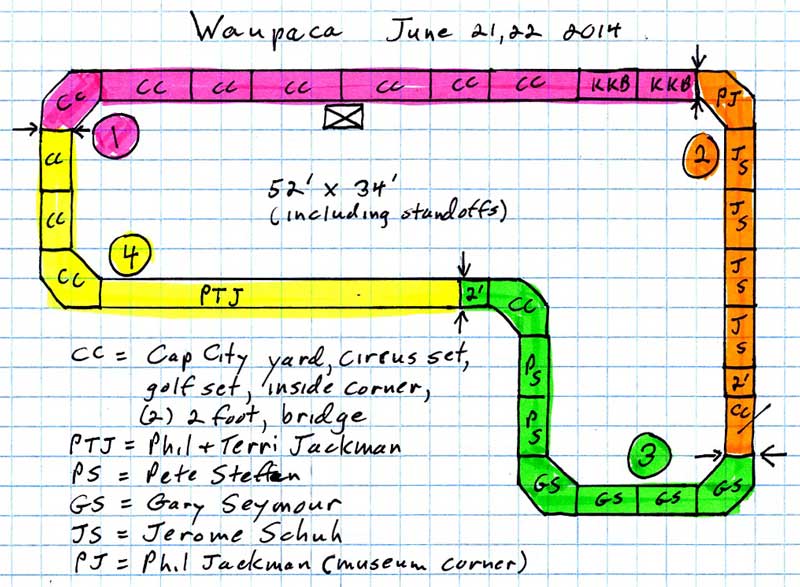 Waupaca June 21, 22 2014
CC CC CC CC CC CC CC KKB KKB PJ
1
2
CC
CC
CC
4
JS
JS
JS
JS
2'
CC
52' x 34'
(including standoffs)
PTJ 2' CC
PS
PS
3
GS GS GS GS
CC = Cap City yard, circus set,
golf set, inside corner,
(2) 2 foot, bridge
PTJ = Phil + Terri Jackman
PS = Pete Steffen
GS = Gary Seymour
JS = Jerome Schuh
PJ = Phil Jackman (museum corner)